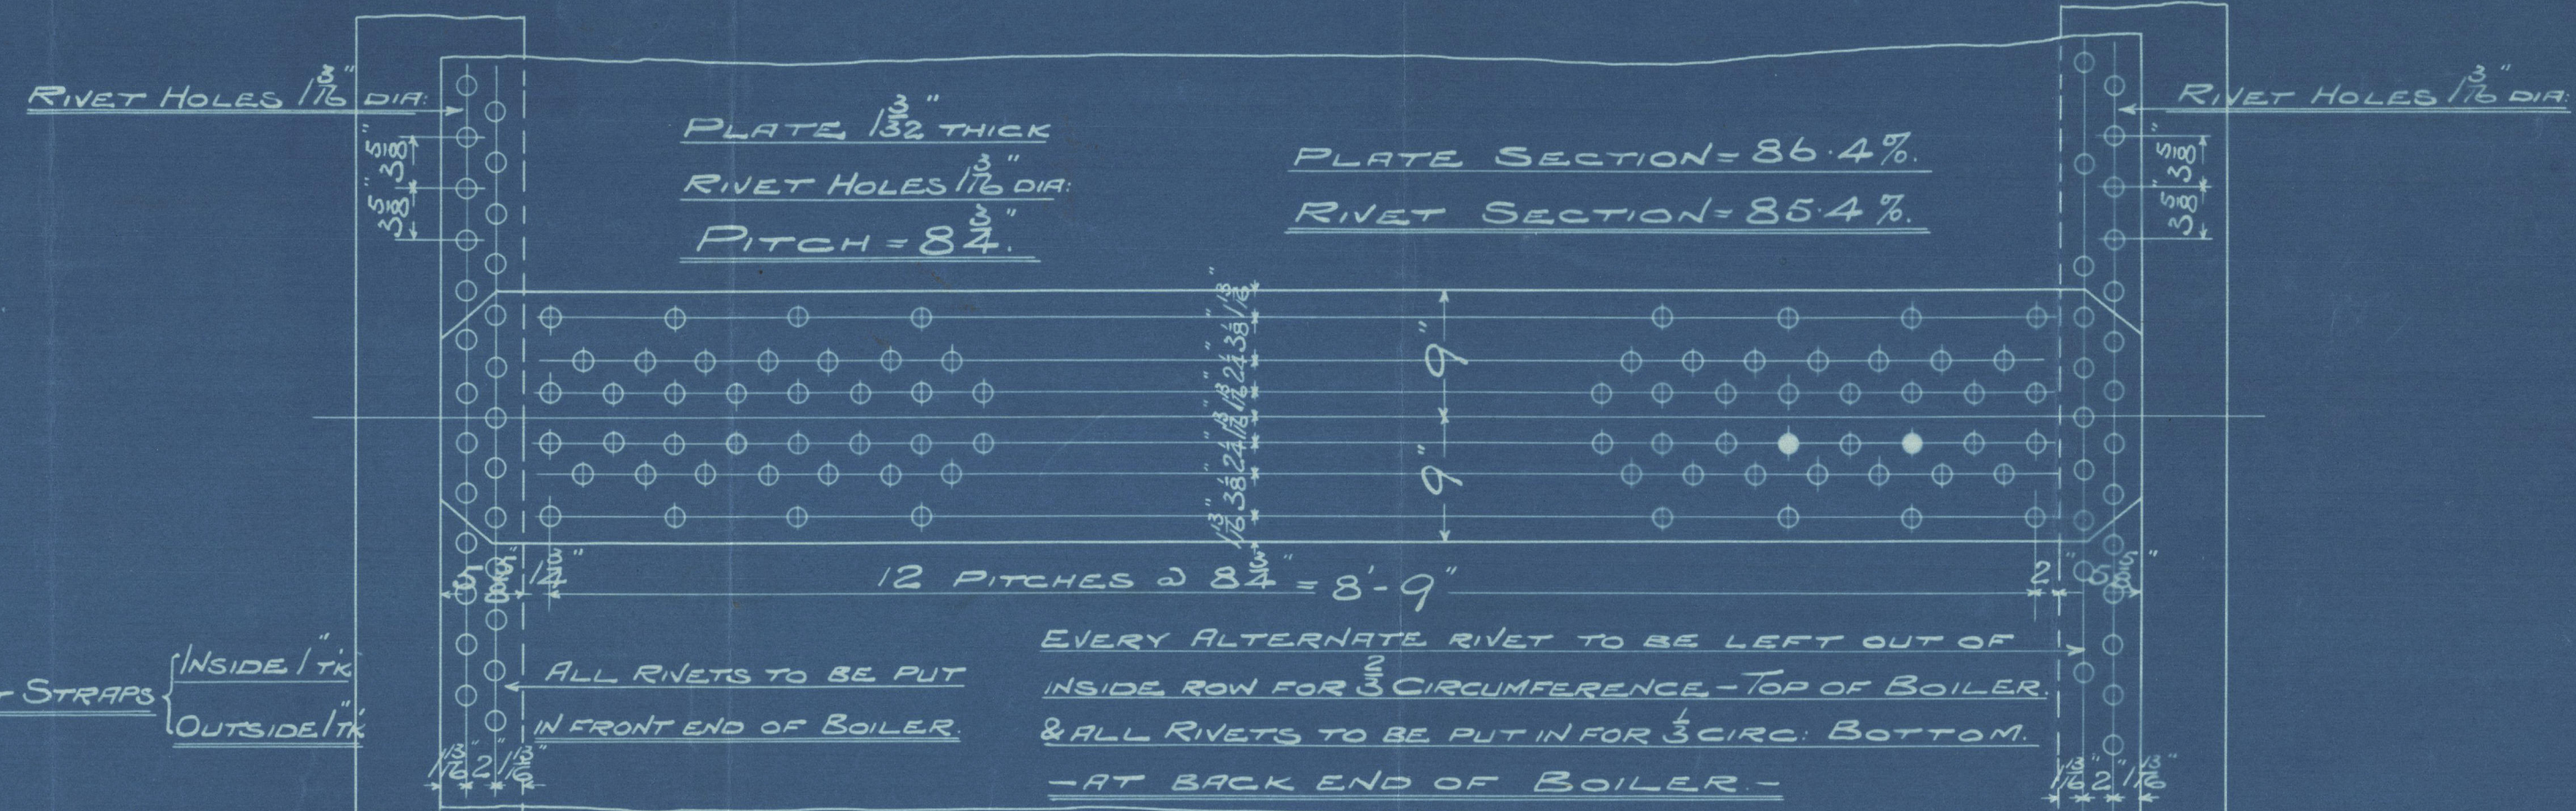 RIVET HOLES 1 3/16" DIA:
RIVET HOLES 1 3/16" DIA:
3 5/8" 3 5/8"
3 5/8" 3 5/8"
PLATE 1 3/32" THICK
RIVET HOLES 1 3/16" DIA:
PITCH = 8 3/4".
PLATE SECTION = 86.4 %.
RIVET SECTION = 85.4 %.
1 13/16" 3 1/8" 2 1/4" 1 13/16" 1 13/16" 2 1/4" 3 1/8" 1 13/16"
9"
9"
5 5/8" 1 3/4"
12 PITCHES @ 8 3/4" = 8'-9"
2" 5 5/8"
STRAPS
INSIDE 1" TK
OUTSIDE 1" TK
ALL RIVETS TO BE PUT
IN FRONT END OF BOILER.
EVERY ALTERNATE RIVET TO BE LEFT OUT OF
INSIDE ROW FOR 2/3 CIRCUMFERENCE - TOP OF BOILER.
& ALL RIVETS TO BE PUT IN FOR 1/3 CIRC: BOTTOM.
- AT BACK END OF BOILER. -
1 13/16" 2" 1 13/16"
1 13/16" 2" 1 13/16"